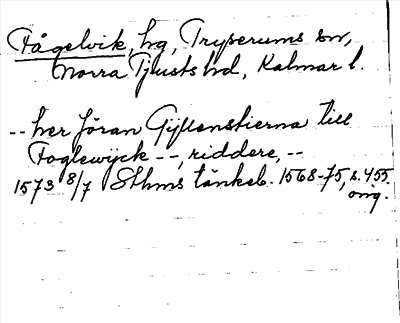 Fågelvik, hg, Tryserums sn,
Norra Tjusts hd, Kalmar l.
-- her Jöran Gyllenstierna till
Foglewijck --, riddere, --
1573 8/7 Sthms tänkeb. 1568-75, s. 455.
orig.